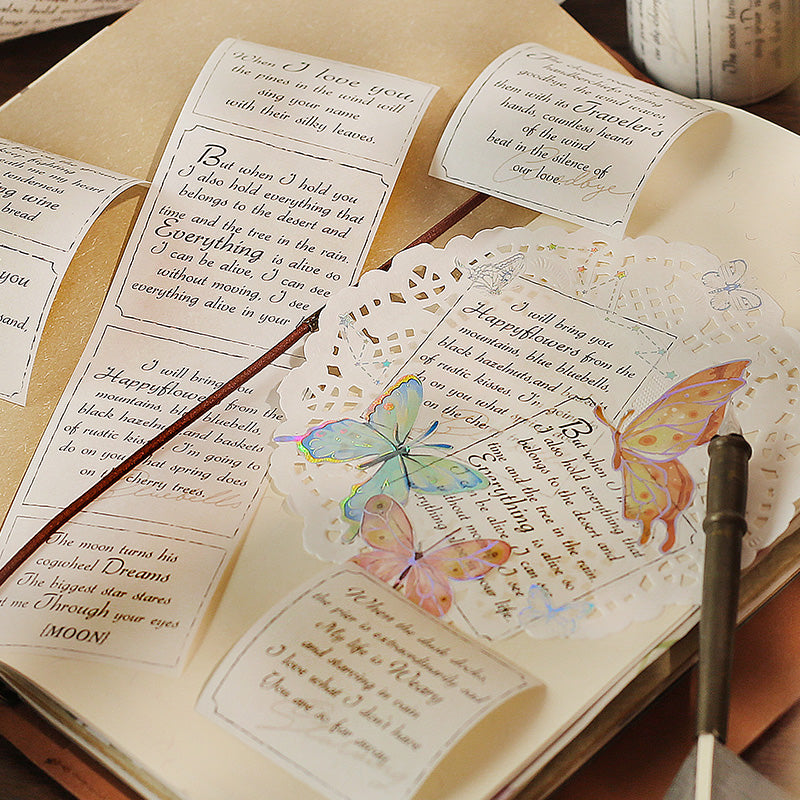 When I love you,
the pines in the wind will
sing your name
with their silky leaves.
But when I hold you
I also hold everything that
belongs to the desert and
time and the tree in the rain.
Everything is alive so
I can be alive, I can see
without moving, I see
everything alive in your
I will bring you
Happyflowers from the
mountains, blue bluebells,
black hazelnuts and baskets
of rustic kisses. I'm going to
do on you what spring does
on the cherry trees.
Bluebells
The moon turns his
cogwheel Dreams
The biggest star stares
at me Through your eyes
[MOON]
with me my heart
tenderness
wine
bread
you
sand,
handkerchiefs waving
goodbye, the wind waves
them with its Traveler's
hands, countless hearts
of the wind
beat in the silence of
our love.
Goodbye
The moon turns
I will bring you
Happyflowers from the
mountains, blue bluebells,
black hazelnuts and
of rustic kisses. I'm going
do on you what
on the cherry
But when I
I also hold everything that
belongs to the desert and
time and the tree in the rain.
Everything is alive so
I can be alive, I can see
without moving, I see
everything
life.
When the dusk docks,
the rise is extraordinarily sad
My life is Weary
and starving in vain
I love what I don't have
You are so far away.